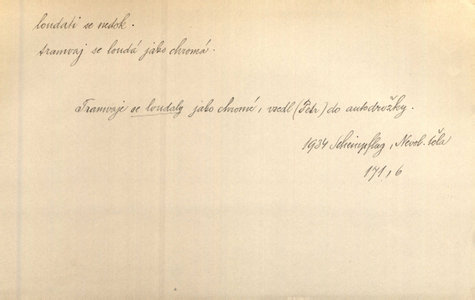 loudati se nedok.
tramvaj se loudá jako chromá.
Tramvaje se loudaly jako chromé, vsedl (Petr) do autodrožky.
1934 Scheinpflug, Nevol. čela
171, 6